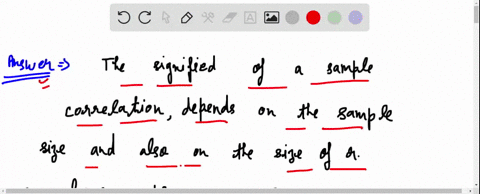 Answer => The signified of a sample
correlation, depends on the sample
size and also on the size of r.